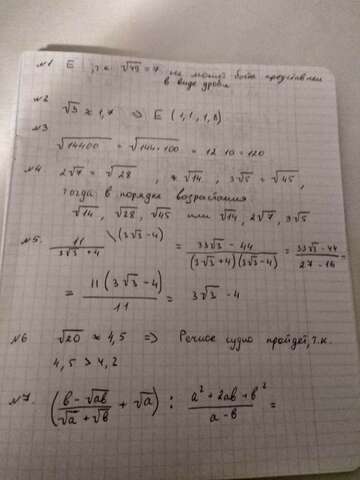 №1 E, т.к. √49 = 7 не может быть представлен
в виде дроби
№2
√3 ≈ 1,7 => E (1,1, 1,8)
№3
√14400 = √144·100 = 12·10 = 120
№4 2√7 = √28, √14, 3√5 = √45,
тогда в порядке возрастания
√14, √28, √45 или √14, 2√7, 3√5
№5. 11/(3√3+4) \(3√3-4) = (33√3-44)/((3√3+4)(3√3-4)) = (33√3-44)/(27-16) =
= 11(3√3-4)/11 = 3√3-4
№6 √20 ≈ 4,5 => Речное судно пройдет, т.к.
4,5 > 4,2
№7. ((b-√ab)/(√a+√b) + √a) : (a²+2ab+b²)/(a-b) =